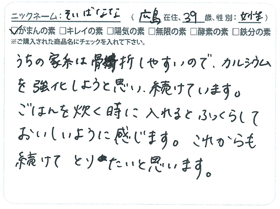 ニックネーム:そいばななな(広島在住、39歳、性別:女性)
☑がまんの素 □キレイの素 □陽気の素 □無限の素 □酵素の素 □鉄分の素
※ご購入された商品名にチェックを入れて下さい。
うちの家系は骨折しやすいので、カルシウム
を強化しようと思い、続けています。
ごはんを炊く時に入れるとふっくらして
おいしいように感じます。これからも
続けてとりたいと思います。